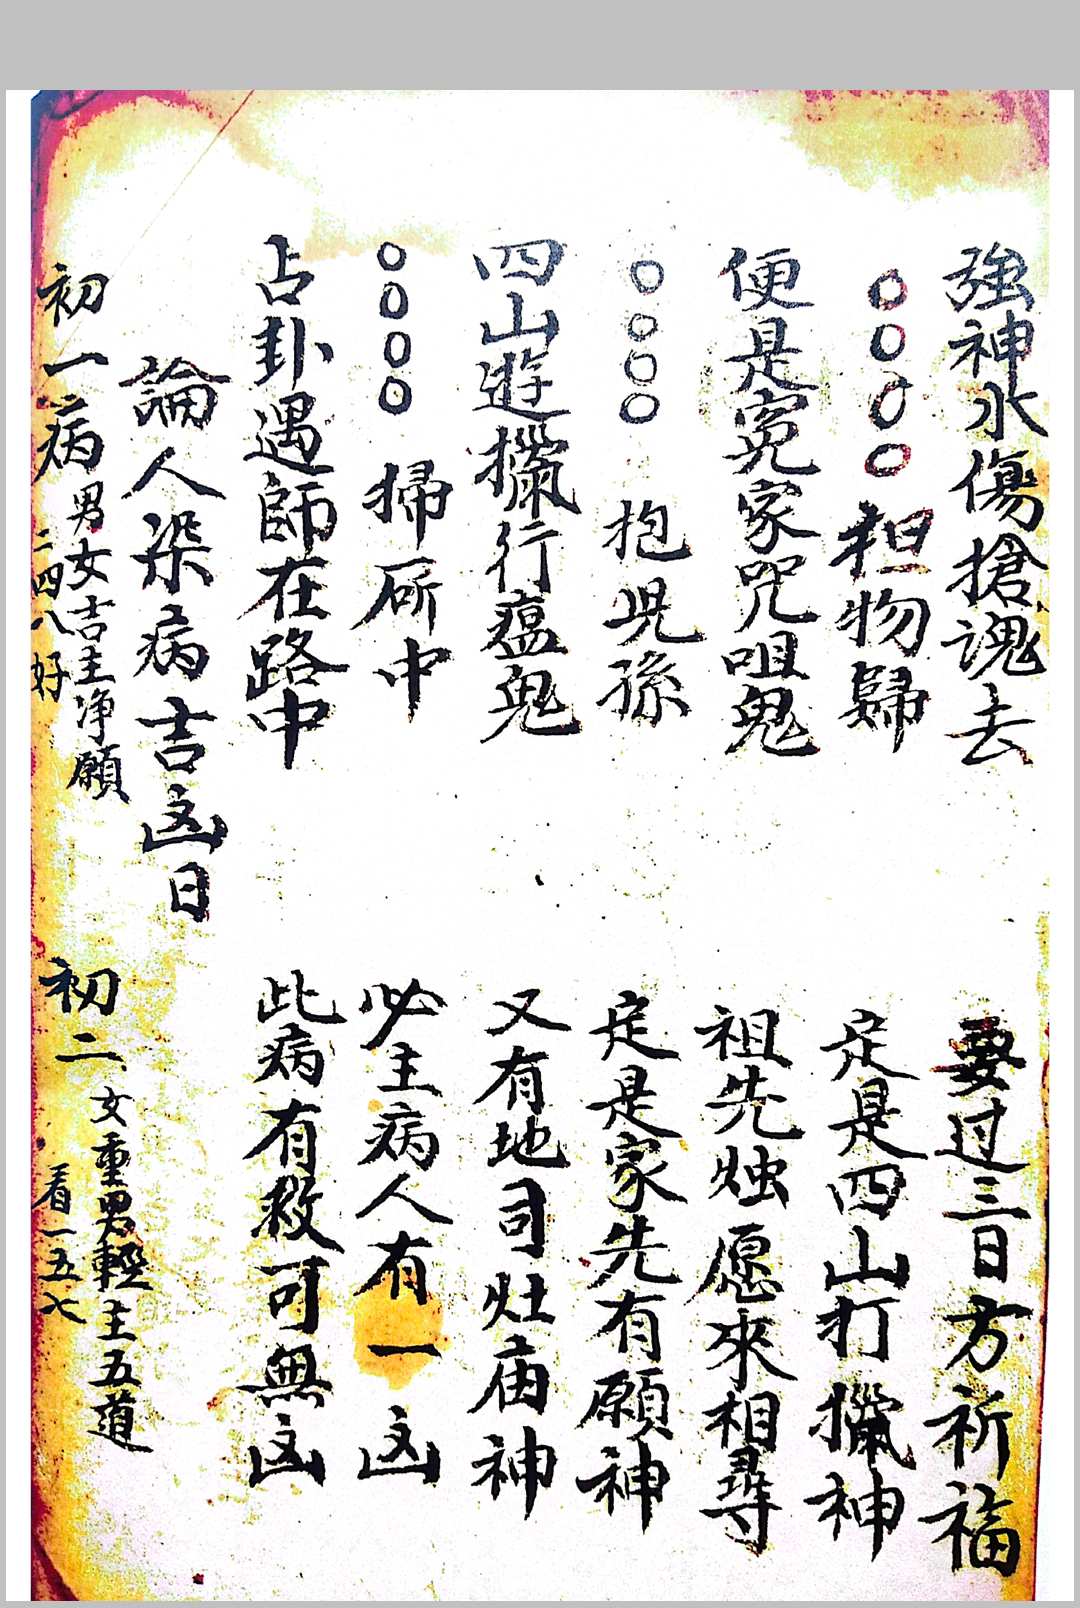 強神水傷搶魂去
要过三日方祈福
○○○○担物歸
定是四山打獵神
便是冤家咒咀鬼
祖先烛愿來相尋
○○○○抱児孫
定是家先有願神
四山遊獵行瘟鬼
又有地司灶庙神
○○○○掃𫝀中
必主病人有一凶
占卦遇師在路中
此病有救可無凶
論人染病吉凶日
初一病男女吉主净願
二四八好
初二女重男輕主五道
看一五七